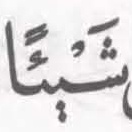 شَيْئًا